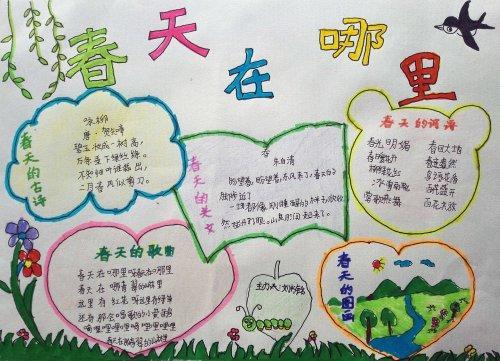 春天在哪里
春天的古诗
咏柳
唐·贺知章
碧玉妆成一树高，
万条垂下绿丝绦。
不知细叶谁裁出，
二月春风似剪刀。
春天的美文
春
朱自清
盼望着，盼望着，东风来了，春天的
脚步近了
一切都像刚睡醒的样子，欣欣
然张开了眼。山
起来了。
春天的词语
春光明媚
春暖花开
百花盛开
百花齐放
春天的歌曲
春天在哪里呀春天在哪里
春天在那青翠的山林里
这里有红花呀这里有绿草
还有那会唱歌的小黄鹂
嘀哩哩哩哩嘀哩哩哩哩
春天的图画
主办人：刘